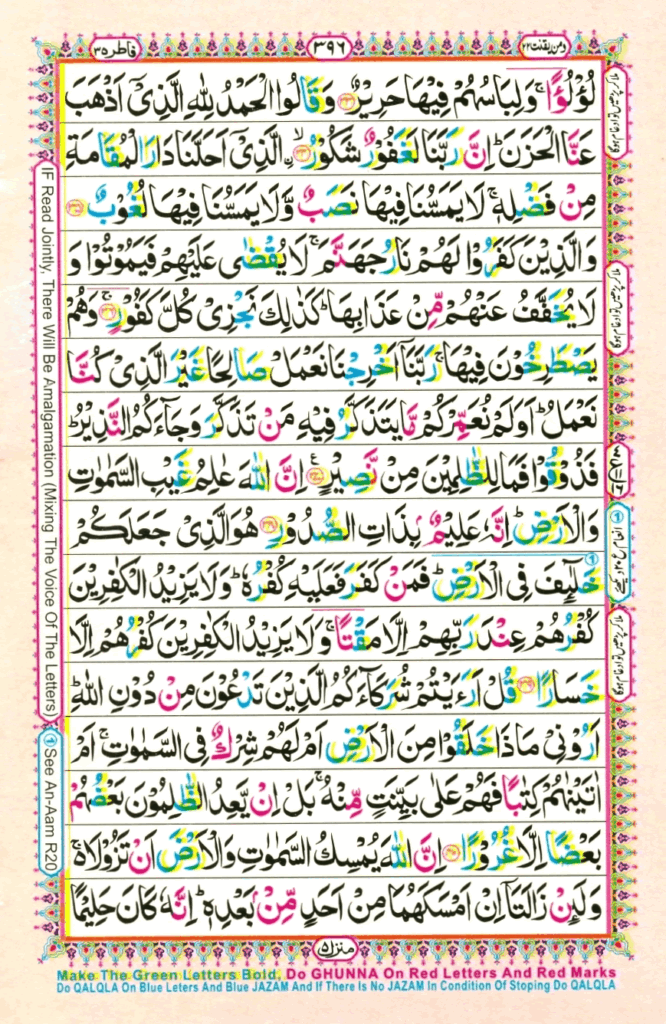 فاطر ٣٥
٣٩٦
ومن یقنت ٢٢
لُؤْلُؤًا ۚ وَلِبَاسُهُمْ فِیْهَا حَرِیْرٌ ﴿٣٣﴾ وَقَالُوا الْحَمْدُ لِلّٰهِ الَّذِیْۤ اَذْهَبَ
عَنَّا الْحَزَنَ ؕ اِنَّ رَبَّنَا لَغَفُوْرٌ شَكُوْرُ ۙ﴿٣٤﴾ الَّذِیْۤ اَحَلَّنَا دَارَ الْمُقَامَةِ
مِنْ فَضْلِهٖ ۚ لَا یَمَسُّنَا فِیْهَا نَصَبٌ وَّلَا یَمَسُّنَا فِیْهَا لُغُوْبٌ ﴿٣٥﴾
وَالَّذِیْنَ كَفَرُوْا لَهُمْ نَارُ جَهَنَّمَ ۚ لَا یُقْضٰی عَلَیْهِمْ فَیَمُوْتُوْا وَ
لَا یُخَفَّفُ عَنْهُمْ مِّنْ عَذَابِهَا ؕ كَذٰلِكَ نَجْزِیْ كُلَّ كَفُوْرٍ ۚ﴿٣٦﴾ وَهُمْ
یَصْطَرِخُوْنَ فِیْهَا ۚ رَبَّنَاۤ اَخْرِجْنَا نَعْمَلْ صَالِحًا غَیْرَ الَّذِیْ كُنَّا
نَعْمَلُ ؕ اَوَلَمْ نُعَمِّرْكُمْ مَّا یَتَذَكَّرُ فِیْهِ مَنْ تَذَكَّرَ وَجَآءَكُمُ النَّذِیْرُ ؕ
فَذُوْقُوْا فَمَا لِلظّٰلِمِیْنَ مِنْ نَّصِیْرٍ ﴿٣٧﴾ اِنَّ اللّٰهَ عٰلِمُ غَیْبِ السَّمٰوٰتِ
وَالْاَرْضِ ؕ اِنَّهٗ عَلِیْمٌۢ بِذَاتِ الصُّدُوْرِ ﴿٣٨﴾ هُوَ الَّذِیْ جَعَلَكُمْ
خَلٰٓئِفَ فِی الْاَرْضِ ؕ فَمَنْ كَفَرَ فَعَلَیْهِ كُفْرُهٗ ؕ وَلَا یَزِیْدُ الْكٰفِرِیْنَ
كُفْرُهُمْ عِنْدَ رَبِّهِمْ اِلَّا مَقْتًا ۚ وَلَا یَزِیْدُ الْكٰفِرِیْنَ كُفْرُهُمْ اِلَّا
خَسَارًا ﴿٣٩﴾ قُلْ اَرَءَیْتُمْ شُرَكَآءَكُمُ الَّذِیْنَ تَدْعُوْنَ مِنْ دُوْنِ اللّٰهِ ؕ
اَرُوْنِیْ مَاذَا خَلَقُوْا مِنَ الْاَرْضِ اَمْ لَهُمْ شِرْكٌ فِی السَّمٰوٰتِ ۚ اَمْ
اٰتَیْنٰهُمْ كِتٰبًا فَهُمْ عَلٰی بَیِّنَتٍ مِّنْهُ ۚ بَلْ اِنْ یَّعِدُ الظّٰلِمُوْنَ بَعْضُهُمْ
بَعْضًا اِلَّا غُرُوْرًا ﴿٤٠﴾ اِنَّ اللّٰهَ یُمْسِكُ السَّمٰوٰتِ وَالْاَرْضَ اَنْ تَزُوْلَا ۚ۬
وَلَئِنْ زَالَتَاۤ اِنْ اَمْسَكَهُمَا مِنْ اَحَدٍ مِّنْۢ بَعْدِهٖ ؕ اِنَّهٗ كَانَ حَلِیْمًا
ملا کر پڑھیں تو ادغام ہوگا
ملا کر پڑھیں تو ادغام ہوگا
ملا کر پڑھیں تو ادغام ہوگا
IF Read Jointly, There Will Be Amalgamation (Mixing The Voice Of The Letters)
See An-Aam R20
منزل ٥
Make The Green Letters Bold, Do GHUNNA On Red Letters And Red Marks
Do QALQLA On Blue Leters And Blue JAZAM And If There Is No JAZAM In Condition Of Stoping Do QALQLA